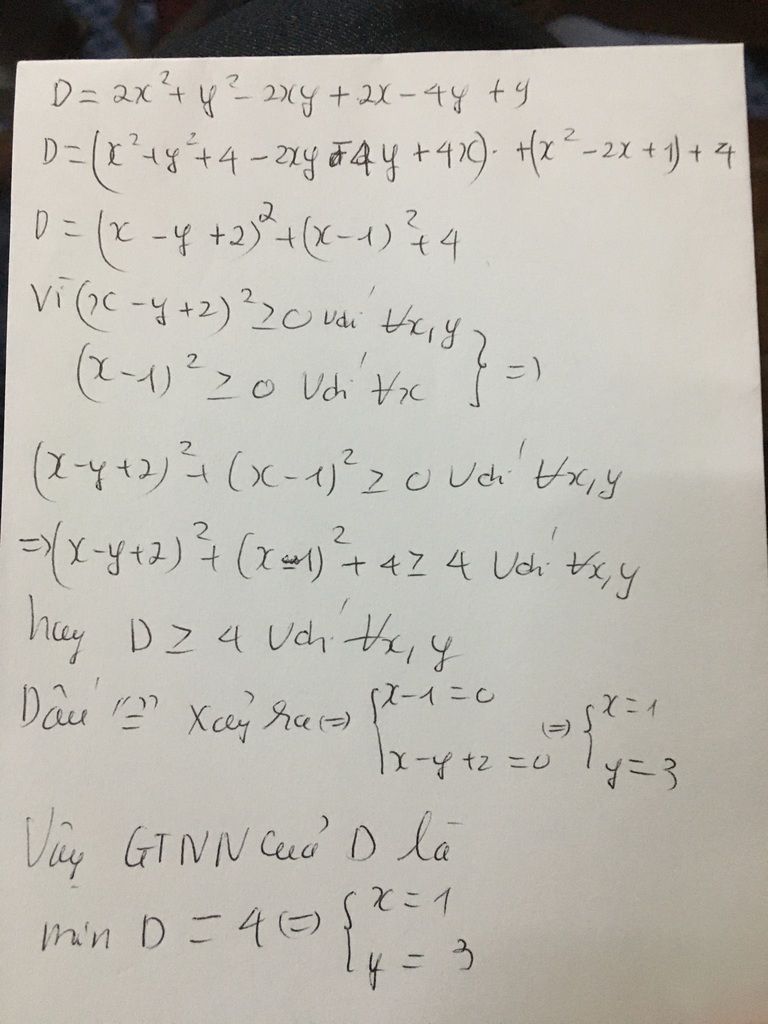 D = 2x² + y² - 2xy + 2x - 4y + 9
D = (x² + y² + 4 - 2xy - 4y + 4x) + (x² - 2x + 1) + 4
D = (x - y + 2)² + (x - 1)² + 4
Vì (x - y + 2)² ≥ 0 với ∀x, y
(x - 1)² ≥ 0 với ∀x } =)
(x - y + 2)² + (x - 1)² ≥ 0 với ∀x, y
=> (x - y + 2)² + (x - 1)² + 4 ≥ 4 với ∀x, y
hay D ≥ 4 với ∀x, y
Dấu "=" xảy ra (=) { x - 1 = 0 (=) { x = 1
x - y + 2 = 0 y = 3
Vậy GTNN của D là
min D = 4 (=) { x = 1
y = 3